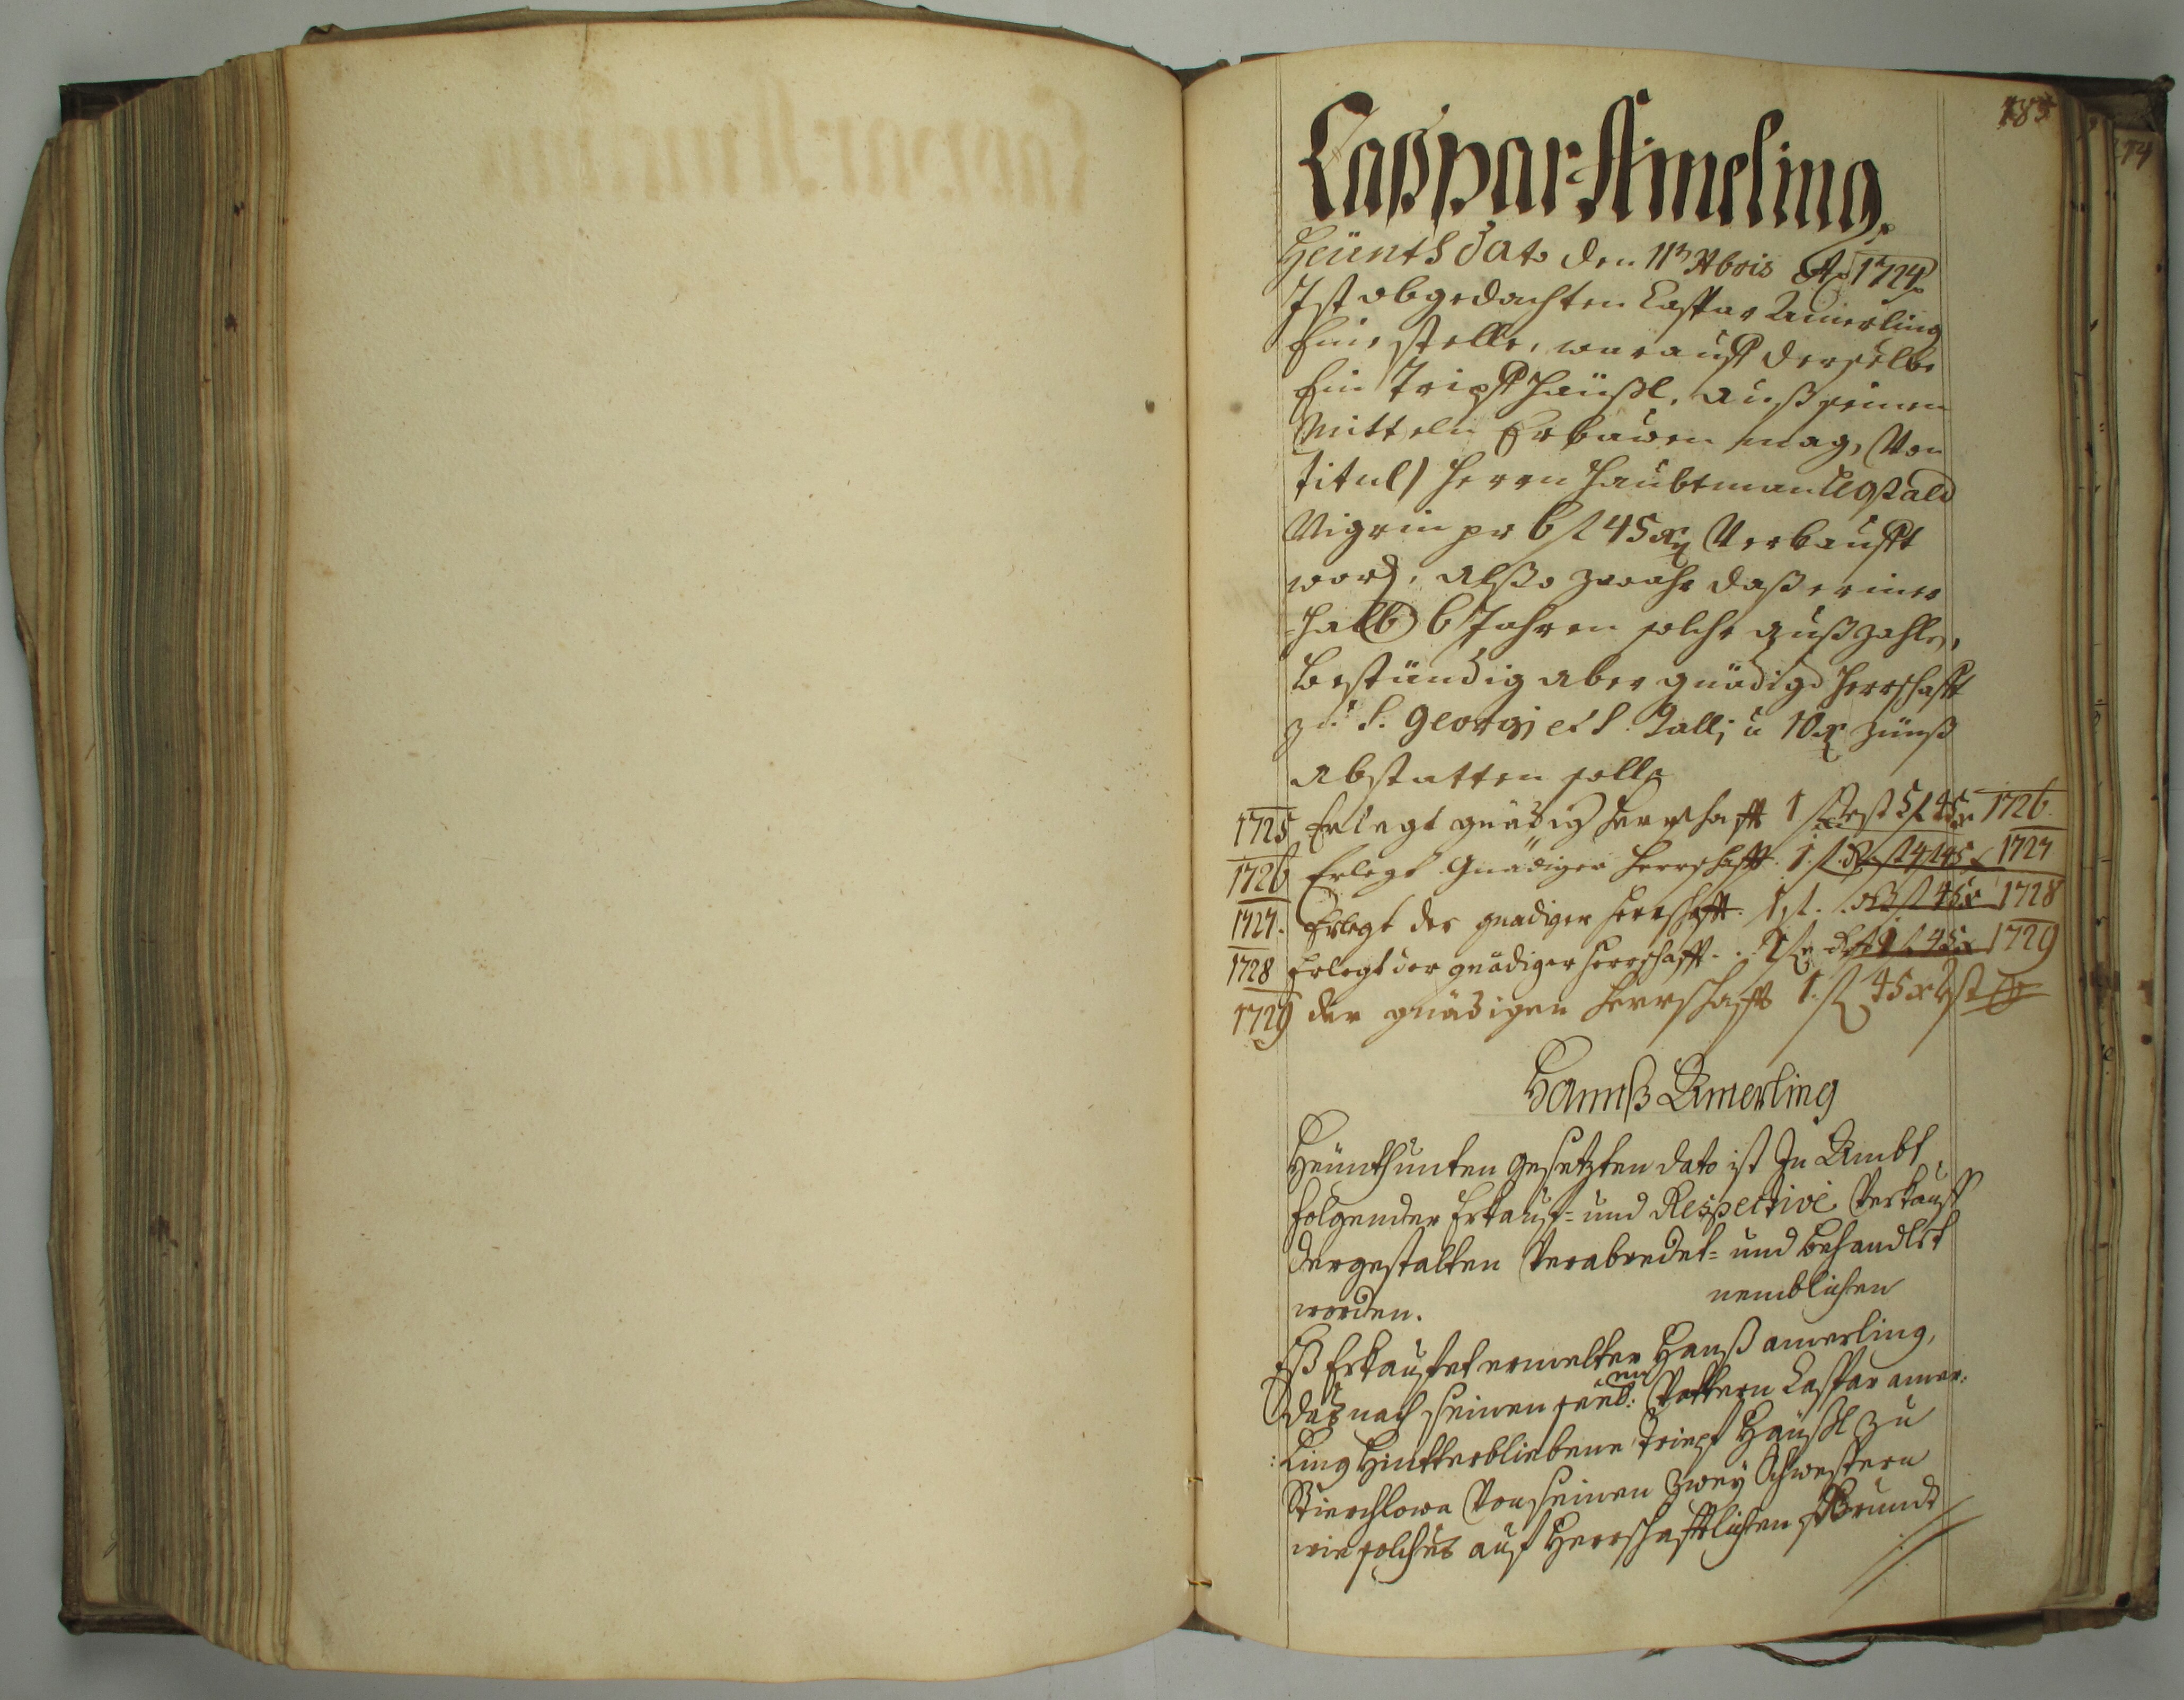 185
174
Caspar Ameling.
Heünth dato den 11t Xbris Ao 1724
Ist obgedachten Caspar Amerling
Eine stelle, worauff derselbe
Ein Tripst häußl, auß seinen
Mitteln Erbauen mag, Von
titul) Herrn Haubtman
pr 6 fl 45 xr Verkaufft
word, also zwahr daß er inner
halb 6 Jahren solche außzahlen,
beständig aber gnädige Herrschafft
zu S. Georgi et S. Galli à 10 xr zünß
abstatten solle
1725 Erlegt gnädig Herrschafft 1 fl Rest 5 fl 45 xr 1726
1726 Erlegt Gnädiger Herrschafft 1 fl Rest 4 fl 45 x 1727
1727. Erlegt der gnädigen Herrschafft. 1 fl. 45 x 1728
1728 Erlegt der gnädiger Herrschafft 45 x 1729
1729 der gnädigen Herrschafft 1 fl 45 x Rest
Hannß Amerling
Heünth unten gesetzten dato ist In Ambt
folgender Erkauf- und Respective Verkauff
dergestalten Verabredet- und behandlet
worden. nemblichen
Eß Erkaufet ermelter Hanß amerling,
daß nach seinen Vattern Caspar amer:
:ling Hinterbliebene Triepst Häußl zu
Von seinen zwey Schwestern
wie solches auf Herrschafftlichen Grundt